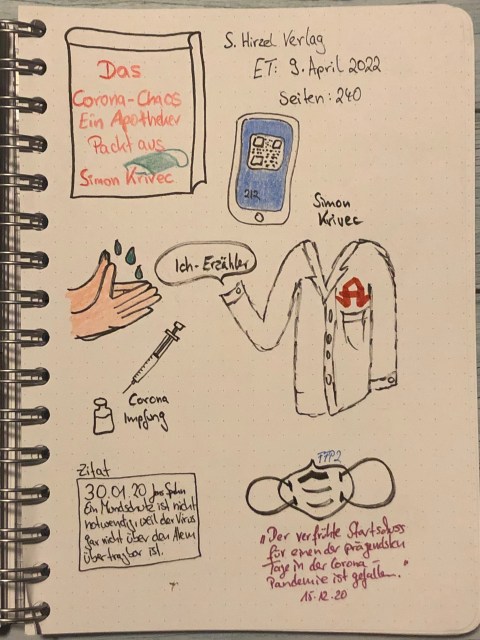 S. Hirzel Verlag
ET: 9. April 2022
Seiten: 240
Das
Corona-Chaos
Ein Apotheker
Packt aus
Simon Krivec
212
Simon
Krivec
Ich-Erzähler
A
Corona
Impfung
Zitat
30.01.20 Jens Spahn
Ein Mundschutz ist nicht
notwendig, weil der Virus
gar nicht über den Atem
übertragbar ist.
FFP2
"Der verfrühte Startschuss
für einen der prägendsten
Tage in der Corona-
Pandemie ist gefallen."
15.12.20